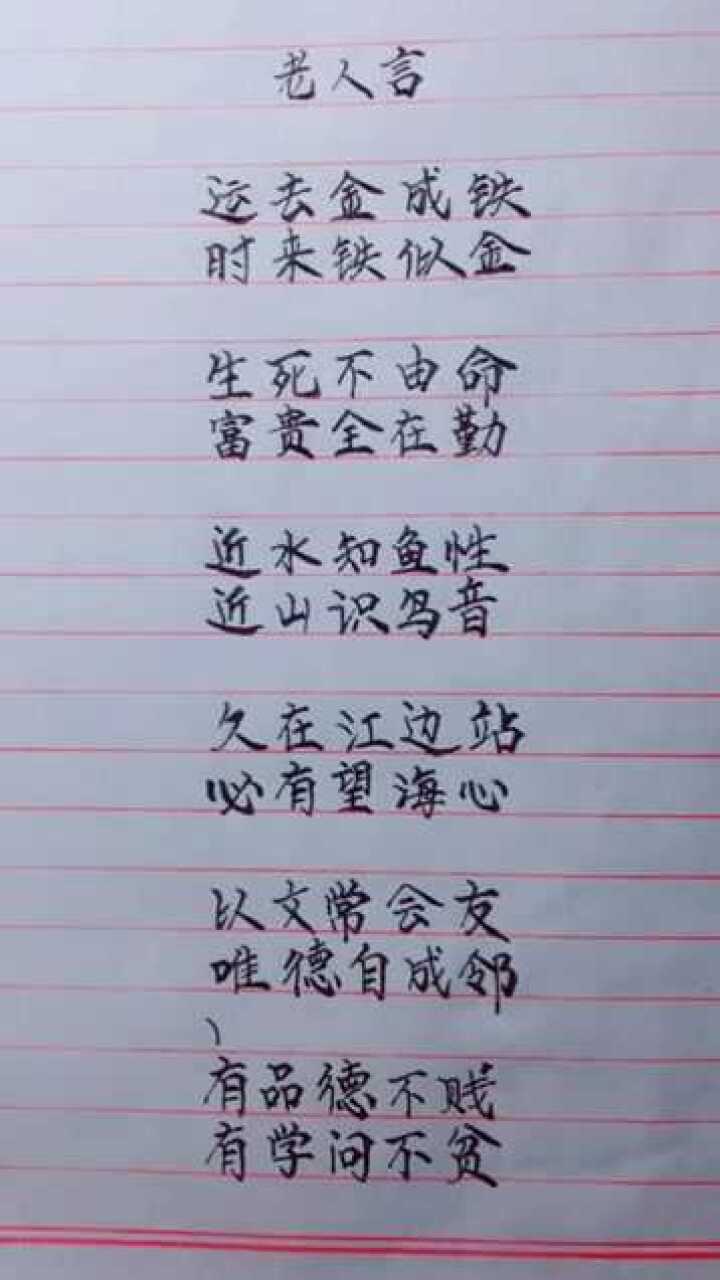 老人言
运去金成铁
时来铁似金
生死不由命
富贵全在勤
近水知鱼性
近山识鸟音
久在江边站
必有望海心
以文常会友
唯德自成邻
有品德不贱
有学问不贫